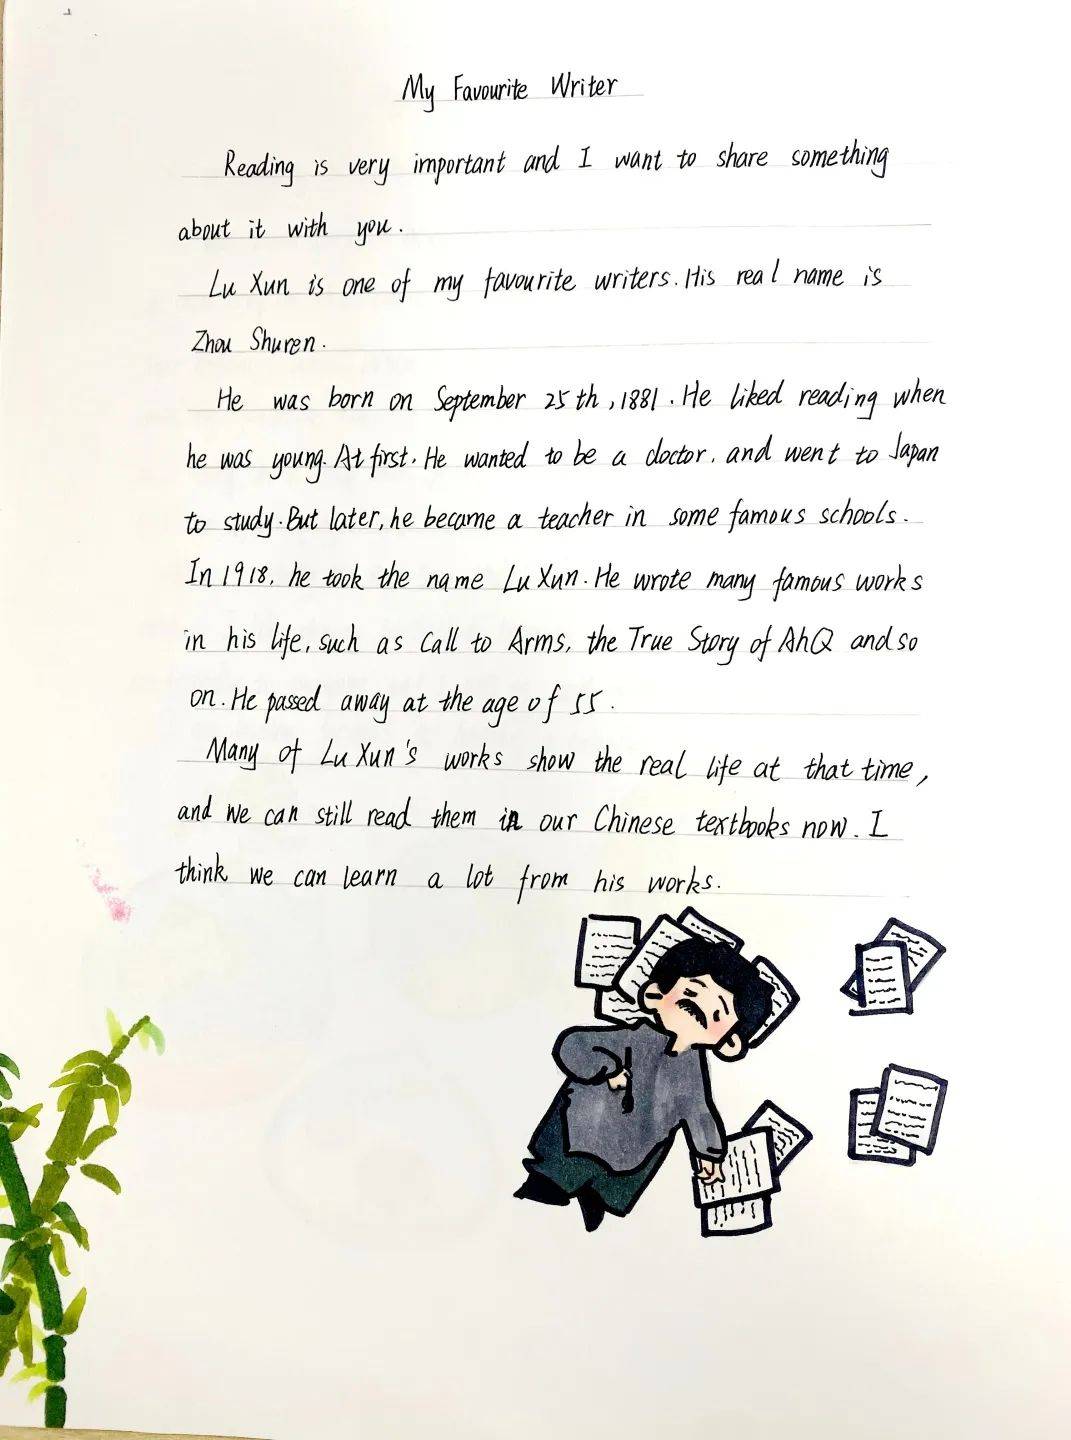 My Favourite Writer
Reading is very important and I want to share something
about it with you.
Lu Xun is one of my favourite writers. His real name is
Zhou Shuren.
He was born on September 25th, 1881. He liked reading when
he was young. At first. He wanted to be a doctor. and went to Japan
to study. But later, he became a teacher in some famous schools.
In 1918. he took the name Lu Xun. He wrote many famous works
in his life, such as Call to Arms, the True Story of AhQ and so
on. He passed away at the age of 55.
Many of Lu Xun's works show the real life at that time,
and we can still read them in our Chinese textbooks now. I
think we can learn a lot from his works.